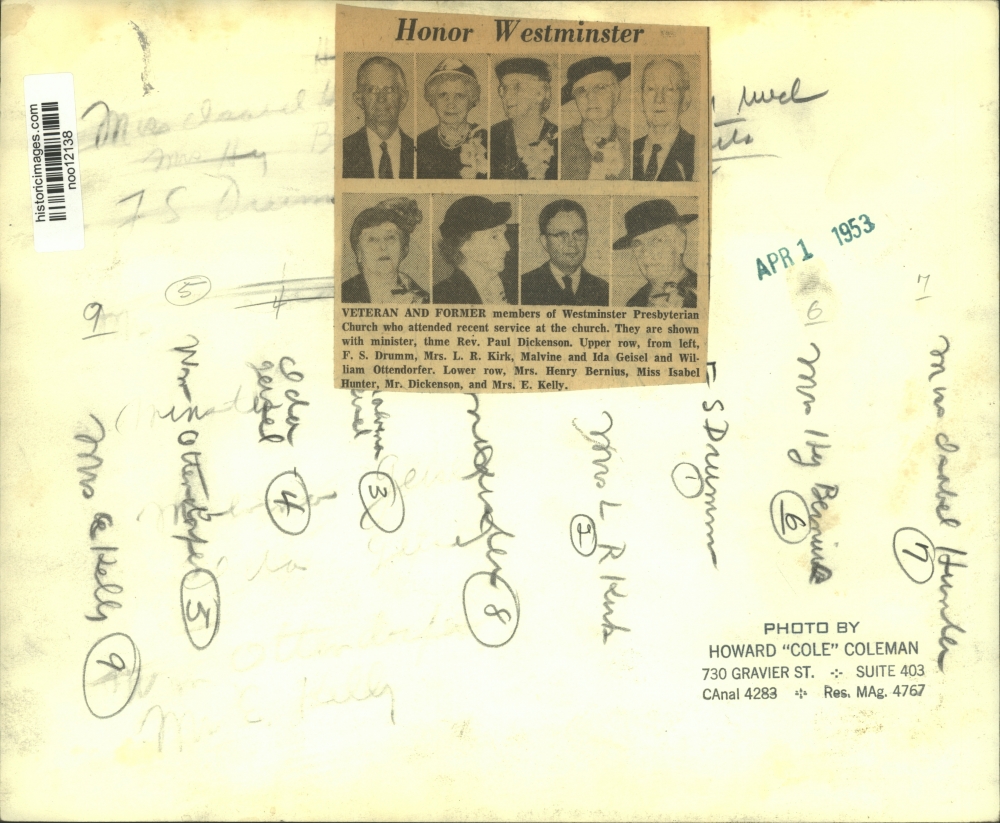 Honor Westminster
VETERAN AND FORMER members of Westminster Presbyterian
Church who attended recent service at the church. They are shown
with minister, thme Rev. Paul Dickenson. Upper row, from left,
F. S. Drumm, Mrs. L. R. Kirk, Malvine and Ida Geisel and Wil-
liam Ottendorfer. Lower row, Mrs. Henry Bernius, Miss Isabel
Hunter, Mr. Dickenson, and Mrs. E. Kelly.
historicimages.com
noo12138
Miss Isabel
Mrs Hy B
F S Drumm
APR 1 1953
5
4
9
6
7
Mrs E Kelly
9
Wm Ottendorfer
5
Ida
Geisel
4
3
8
Mrs L R Kirk
2
F S Drumm
1
Mrs Hy Bernius
6
Miss Isabel Hunter
7
Ida
Ottendorfer
Mrs E. Kelly
PHOTO BY
HOWARD "COLE" COLEMAN
730 GRAVIER ST. -:- SUITE 403
CAnal 4283 -:- Res. MAg. 4767